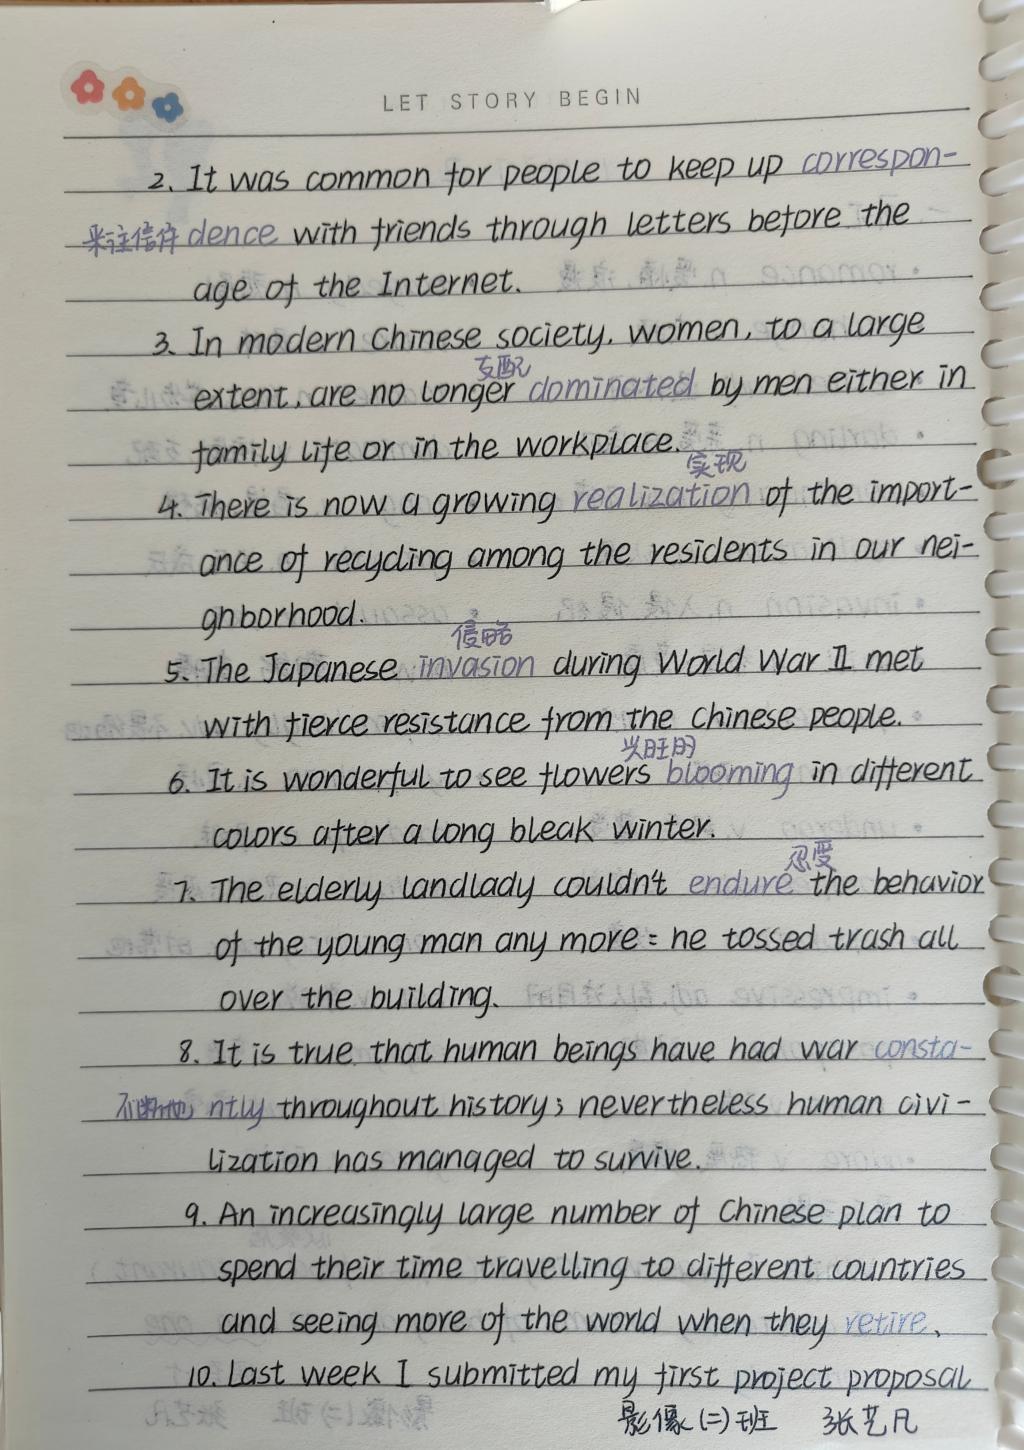 LET STORY BEGIN
2. It was common for people to keep up correspon-
来往信件 dence with friends through letters before the
age of the Internet.
3. In modern Chinese society, women, to a large
支配
extent, are no longer dominated by men either in
family life or in the workplace.
实现
4. There is now a growing realization of the import-
ance of recycling among the residents in our nei-
ghborhood.
侵略
5. The Japanese invasion during World War II met
with fierce resistance from the Chinese people.
兴旺的
6. It is wonderful to see flowers blooming in different
colors after a long bleak winter.
忍受
7. The elderly landlady couldn't endure the behavior
of the young man any more : he tossed trash all
over the building.
8. It is true that human beings have had war consta-
不断地 ntly throughout history; nevertheless human civi-
lization has managed to survive.
9. An increasingly large number of Chinese plan to
spend their time travelling to different countries
and seeing more of the world when they retire.
10. Last week I submitted my first project proposal
影像(二)班 张艺凡